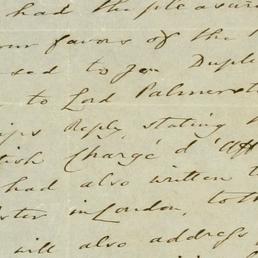 had the pleasure
favors of the
to you Dupli
to Lord Palmerst
Reply, stating
tish Chargé d'Aff
had also written t
ster in London, to th
will also address